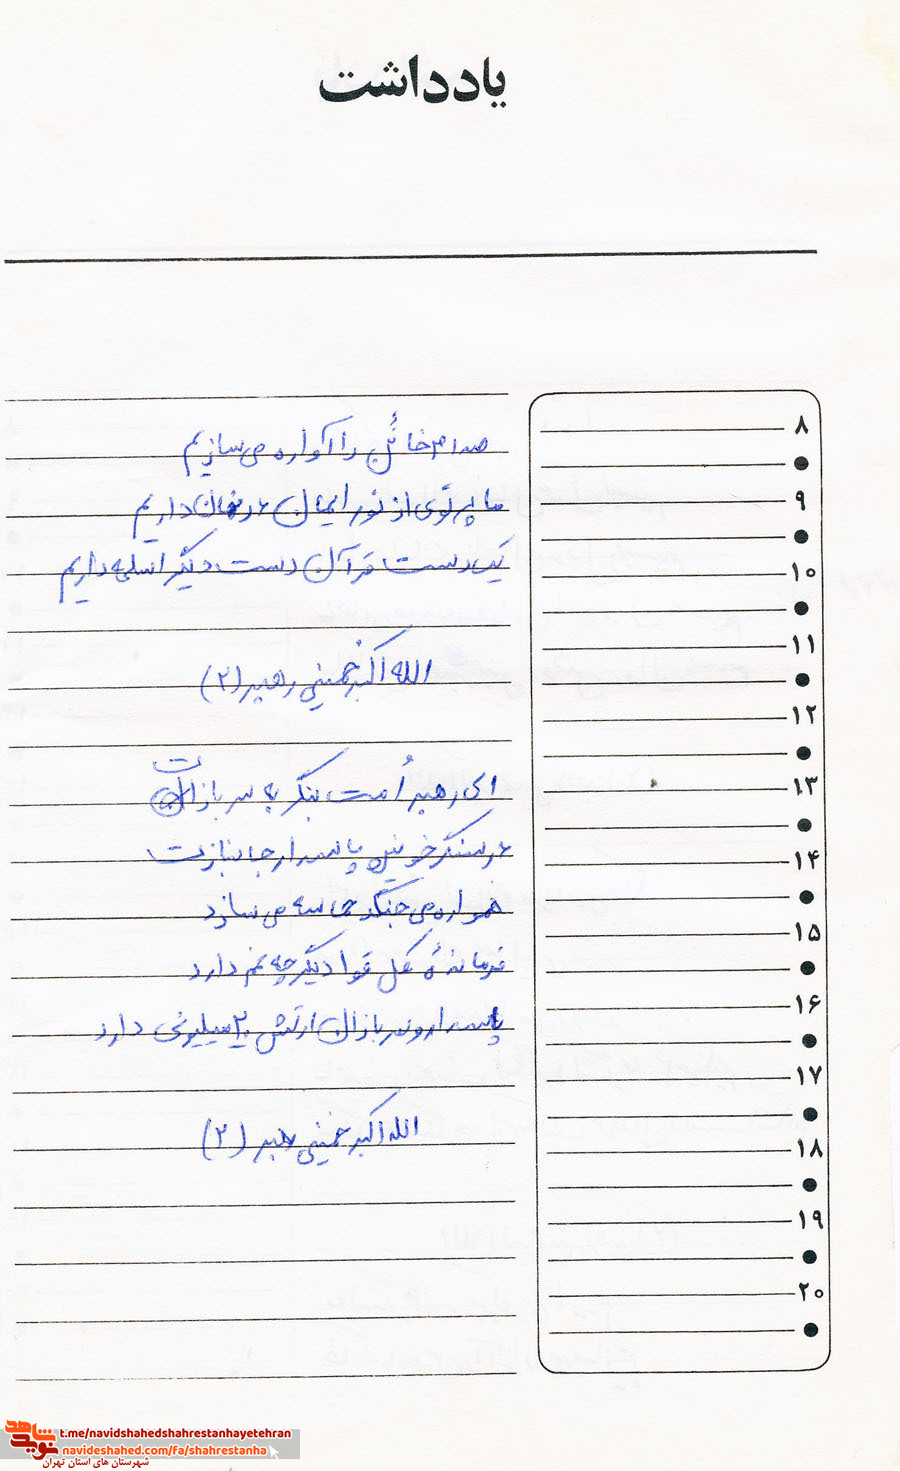 یادداشت
صدام خائن را آواره می سازیم
ما پرتوی از نور ایمان در جان داریم
یک دست قرآن دست دیگر اسلحه داریم
الله اکبر خمینی رهبر (۲)
ای رهبر اُمت بنگر به سربازان ت
در سنگر خونین پاسدار جانبازت
همواره می جنگد حماسه می سازد
فرمانده کل قوا دیگر چه غم دارد
پاسدار و سربازان ارتش ۲۰ میلیونی دارد
الله اکبر خمینی رهبر (۲)
۸
۹
۱۰
۱۱
۱۲
۱۳
۱۴
۱۵
۱۶
۱۷
۱۸
۱۹
۲۰
نوید شاهد
t.me/navidshahedshahrestanhayetehran
navideshahed.com/fa/shahrestanha
شهرستان های استان تهران